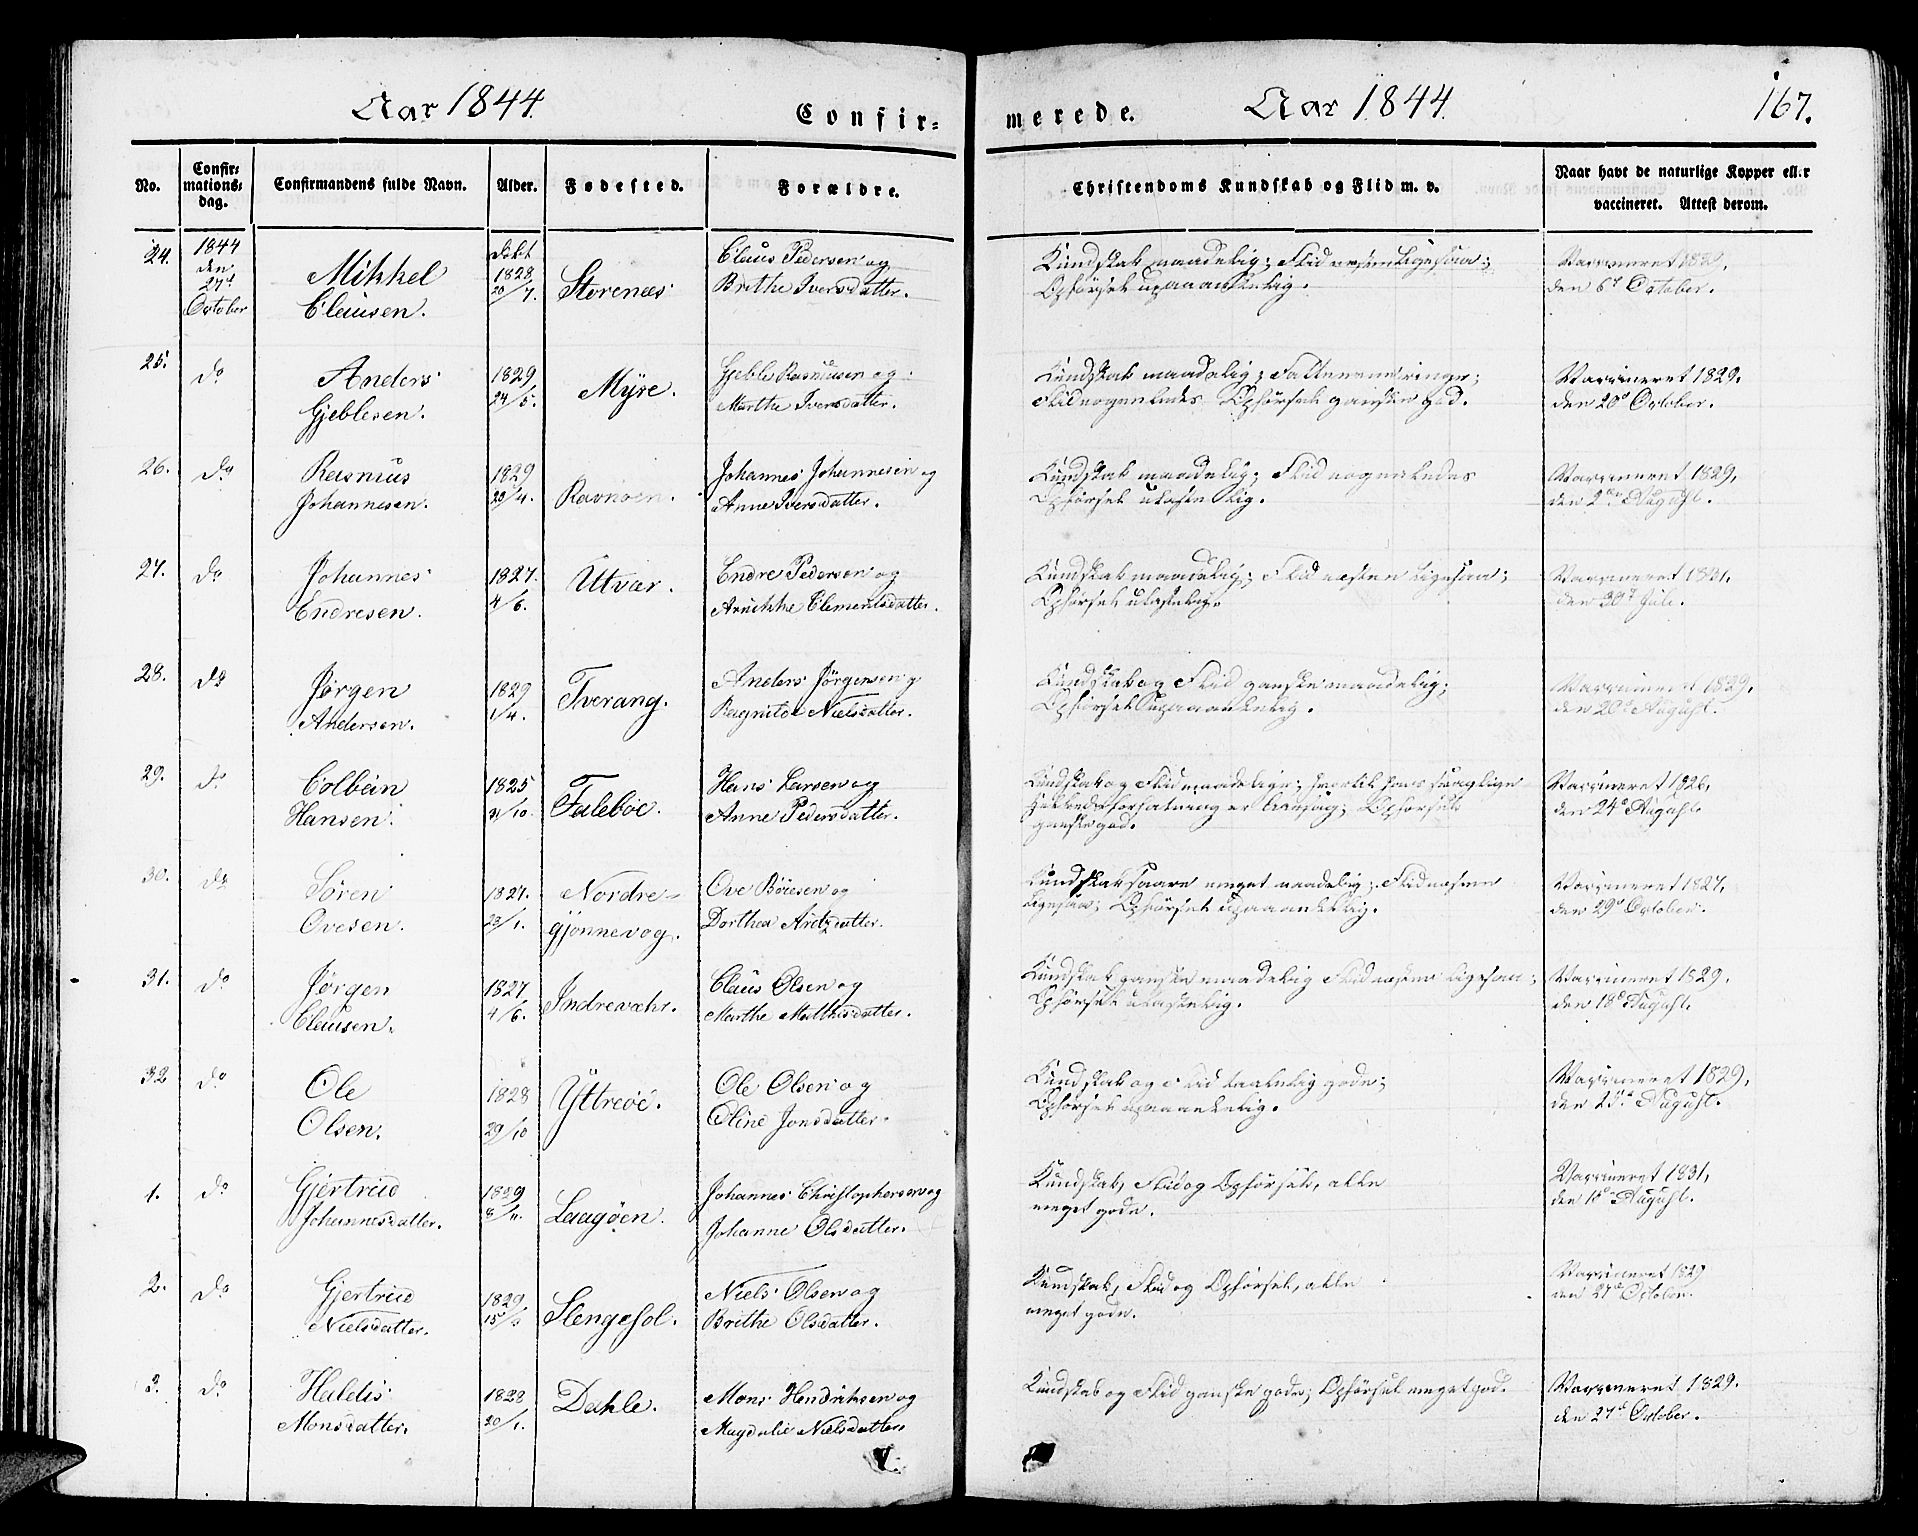 Aar 1844. Confir- merede. Aar 1844. 167.
No. Confir-mations-dag. Confirmandens fulde Navn. Alder. Fødested. Forældre. Christendoms Kundskab og Flid m. v. Naar havt de naturlige Kopper eller vaccineret. Attest derom.
24. 1844 den 27d October Mikkel Clausen. døbt 1828 20/7. Storenæs Claus Pedersen og Brithe Iversdatter. Kundskab maadelig; Flid næsten ligesaa;
Opførsel upaaankelig. Vaccineret
den 6d October.
25. do Anders Gjeblesen. 1829 24/5. Myre. Gjeble Rasmusen og Marthe Iversdatter. Kundskab maadelig; Fatteevne ringe;
Flid nogenledes. Opførsel ganske god. Vaccineret 1829.
den 20d October.
26. do Rasmus Johannesen. 1829 23/4. Ravnøen. Johannes Johannesen og Anne Iversdatter. Kundskab maadelig; Flid nogenledes
Opførsel ulastelig. Vaccineret 1829,
den 2den August.
27. do Johannes Endresen. 1827. 4/6. Utvær. Endre Pedersen og Annikke Clementsdatter. Kundskab maadelig; Flid næsten ligesaa;
Opførsel ulastelig. Vaccineret 1831,
den 30d Juli.
28. do Jørgen Andersen. 1829 1/4. Tverang. Anders Jørgensen og Ragnilde Nielsdatter. Kundskab og Flid ganske maadelig;
Opførsel upaaankelig. Vaccineret 1829,
den 20d August.
29. do Colbein Hansen. 1825 31/10. Faleböe. Hans Larsen og Anne Pedersdatter. Kundskab og Flid maadelige;
Opførsel
ganske god. Vaccineret 1826,
den 24d August.
30. do Sören Ovesen. 1827. 23/1. Nordre-gjönnevog. Ove Böiesen og Dorthea Arentzdatter. Kundskab saare meget maadelig; Flid næsten
ligesaa; Opførsel upaaankelig. Vaccineret 1827,
den 29d October.
31. do Jørgen Clausen. 1827 4/6. Indrevæhr. Claus Olsen og Marthe Matthisdatter. Kundskab ganske maadelig Flid næsten ligesaa;
Opførsel ulastelig. Vaccineret 1829.
den 18d August.
32 do Ole Olsen. 1828 29/10 Yttreöe. Ole Olsen og Oline Jonsdatter. Kundskab og Flid taalelig gode;
Opførsel upaaankelig. Vaccineret 1829,
den 25d August.
1. do Gjertrud Johannesdatter. 1829 8/11. Laagöen. Johannes Christophersen og Johanne Olsdatter. Kundskab, Flid og Opførsel, alle
meget gode. Vaccineret 1831,
den 18d August.
2. do Gjertrud Nielsdatter. 1829 Slengesol. Niels Olsen og Brithe Olsdatter. Kundskab, Flid og Opførsel, alle
meget gode. Vaccineret 1829
den 27d October.
3. do Haldis Monsdatter. 1828 20/1. Dahle. Mons Hendriksen og Magdalie Nielsdatter. Kundskab og Flid ganske gode; Opførsel meget god. Vaccineret 1829.
den 27d October.